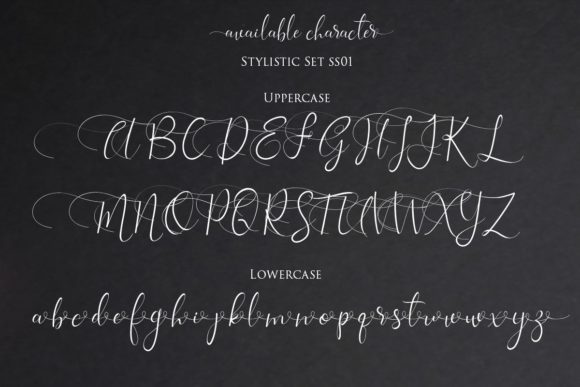 available character
Stylistic Set ss01
Uppercase
A B C D E F G H I J K L
M N O P Q R S T U V W X Y Z
Lowercase
a b c d e f g h i j k l m n o p q r s t u v w x y z